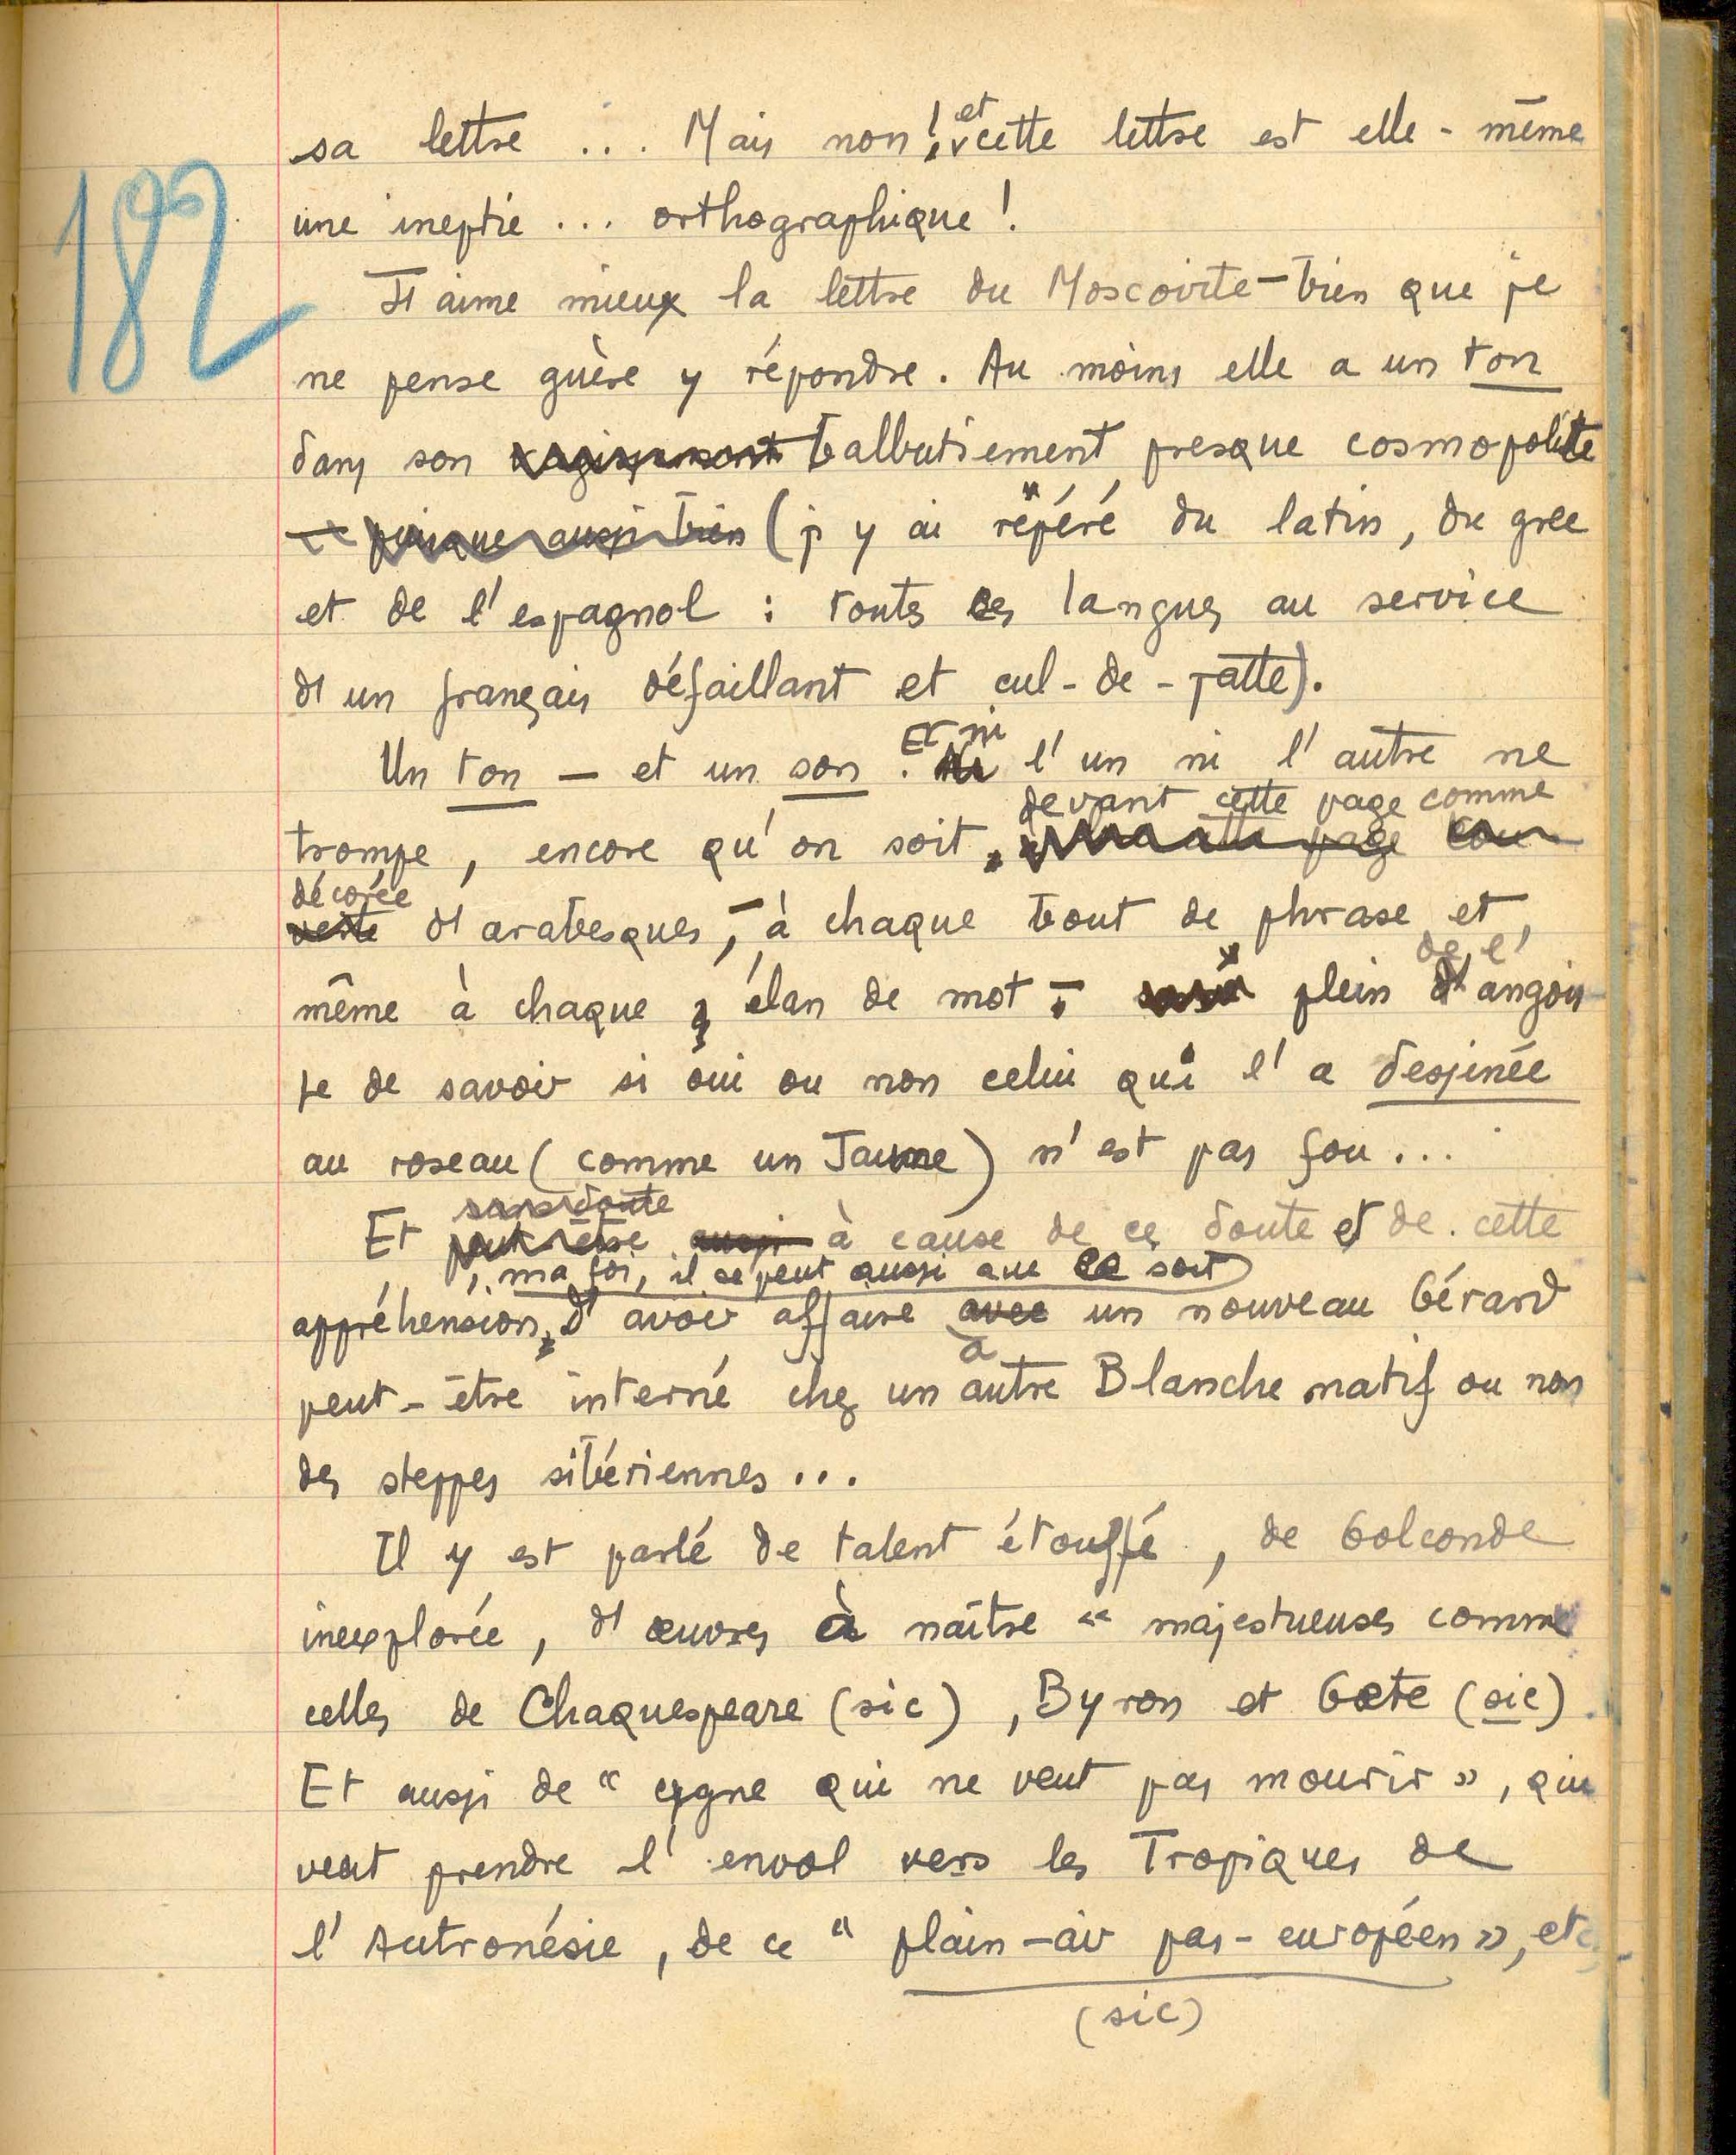 182
sa lettre ... Mais non ! et cette lettre est elle-même
une ineptie ... orthographique !
J'aime mieux la lettre du Moscovite – bien que je
ne pense guère y répondre. Au moins elle a un ton
dans son balbutiement presque cosmopolite
puisque aussi bien (j'y ai repéré du latin, du grec
et de l'espagnol : toutes ces langues au service
d'un français défaillant et cul-de-jatte).
Un ton – et un son. Et ni l'un ni l'autre ne
devant cette page comme
trompe, encore qu'on soit, page
décorée
verte d'arabesques, – à chaque bout de phrase et,
même à chaque élan de mot – plein de l'angois-
se de savoir si oui ou non celui qui l'a dessinée
au roseau (comme un Jaune) n'est pas fou...
sans doute
Et peut-être aussi à cause de ce doute et de cette
, ma foi, il se peut aussi que ce soit
appréhension, d'avoir affaire avec un nouveau Gérard
à
peut-être interné chez un autre Blanche natif ou non
des steppes sibériennes...
Il y est parlé de talent étouffé, de Golconde
inexplorée, d'œuvres à naître « majestueuses comme
celles de Chaquespeare (sic), Byron et Gœte (sic).
Et aussi de « cygne qui ne veut pas mourir », qui
veut prendre l'envol vers les Tropiques de
l'Autronésie, de ce « plain-air pas-européen », etc.
(sic)